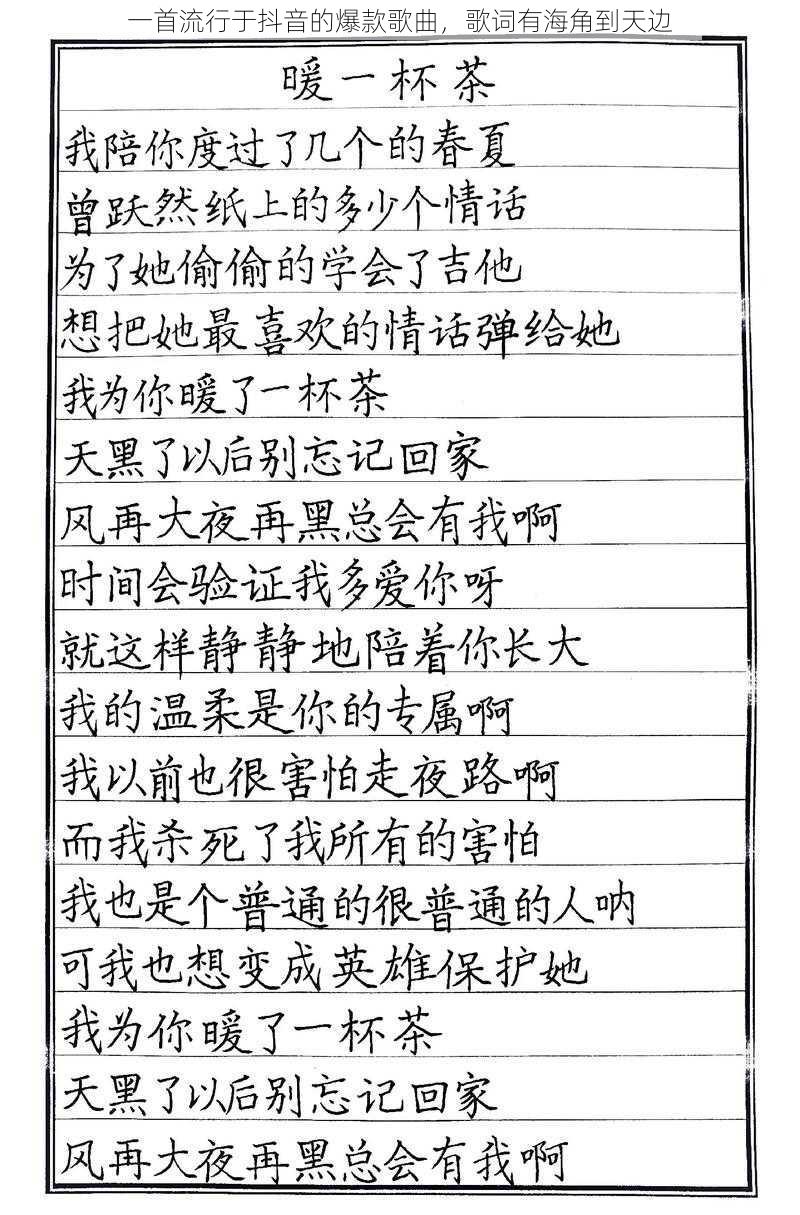 一首流行于抖音的爆款歌曲，歌词有海角到天边
暖一杯茶
我陪你度过了几个的春夏
曾跃然纸上的多少个情话
为了她偷偷的学会了吉他
想把她最喜欢的情话弹给她
我为你暖了一杯茶
天黑了以后别忘记回家
风再大夜再黑总会有我啊
时间会验证我多爱你呀
就这样静静地陪着你长大
我的温柔是你的专属啊
我以前也很害怕走夜路啊
而我杀死了我所有的害怕
我也是个普通的很普通的人呐
可我也想变成英雄保护她
我为你暖了一杯茶
天黑了以后别忘记回家
风再大夜再黑总会有我啊